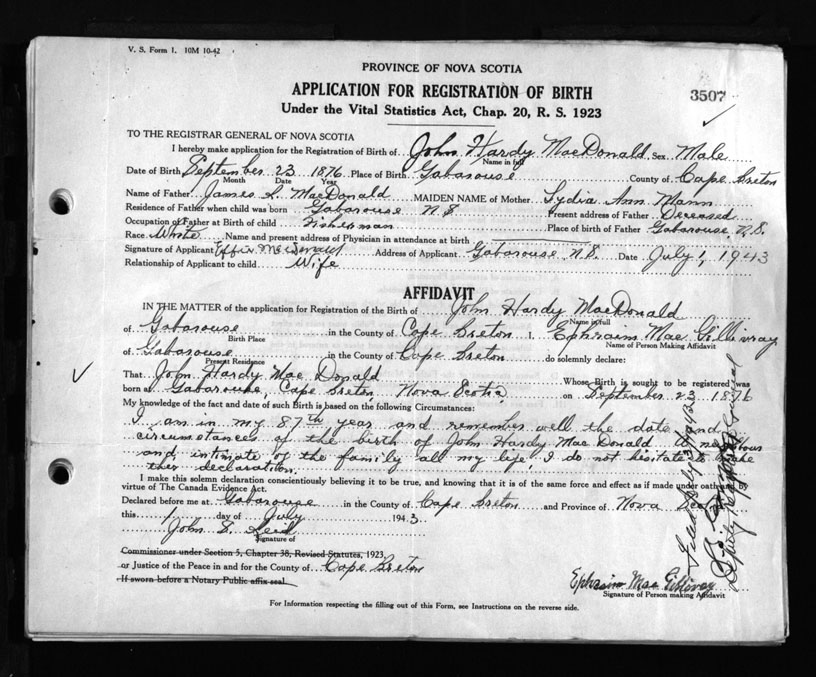 V. S. Form 1. 10M 10-42
PROVINCE OF NOVA SCOTIA
APPLICATION FOR REGISTRATION OF BIRTH
3507
Under the Vital Statistics Act, Chap. 20, R. S. 1923
TO THE REGISTRAR GENERAL OF NOVA SCOTIA
I hereby make application for the Registration of Birth of John Hardy MacDonald Sex Male
Name in full
Date of Birth September 23 1876 Place of Birth Gabarouse County of Cape Breton
Month Date Year
Name of Father James L. MacDonald MAIDEN NAME of Mother Lydia Ann Mann
Residence of Father when child was born Gabarouse N.S. Present address of Father Deceased
Occupation of Father at Birth of child Fisherman Place of birth of Father Gabarouse, N.S.
Race White Name and present address of Physician in attendance at birth
Signature of Applicant Effie MacDonald Address of Applicant Gabarouse N.S. Date July 1, 1943
Relationship of Applicant to child Wife
AFFIDAVIT
IN THE MATTER of the application for Registration of the Birth of John Hardy MacDonald
Name in full
of Gabarouse in the County of Cape Breton I, Ephraim Mac Gillivray
Birth Place Name of Person Making Affidavit
of Gabarouse in the County of Cape Breton do solemnly declare:
Present Residence
That John Hardy Mac Donald Whose Birth is sought to be registered was
born at Gabarouse, Cape Breton, Nova Scotia on September 23, 1876
My knowledge of the fact and date of such Birth is based on the following Circumstances:
I am in my 87th year and remember well the date and
circumstances of the birth of John Hardy Mac Donald. A neighbour
and intimate of the family all my life, I do not hesitate to make
this declaration.
I make this solemn declaration conscientiously believing it to be true, and knowing that it is of the same force and effect as if made under oath and by
virtue of The Canada Evidence Act.
Declared before me at Gabarouse in the County of Cape Breton and Province of Nova Scotia
this 1 day of July 1943.
John S. Reid
Signature of
Commissioner under Section 5, Chapter 38, Revised Statutes, 1923,
or Justice of the Peace in and for the County of Cape Breton
If sworn before a Notary Public affix seal.
Ephraim Mac Gillivray
Signature of Person making Affidavit
For Information respecting the filling out of this Form, see Instructions on the reverse side.